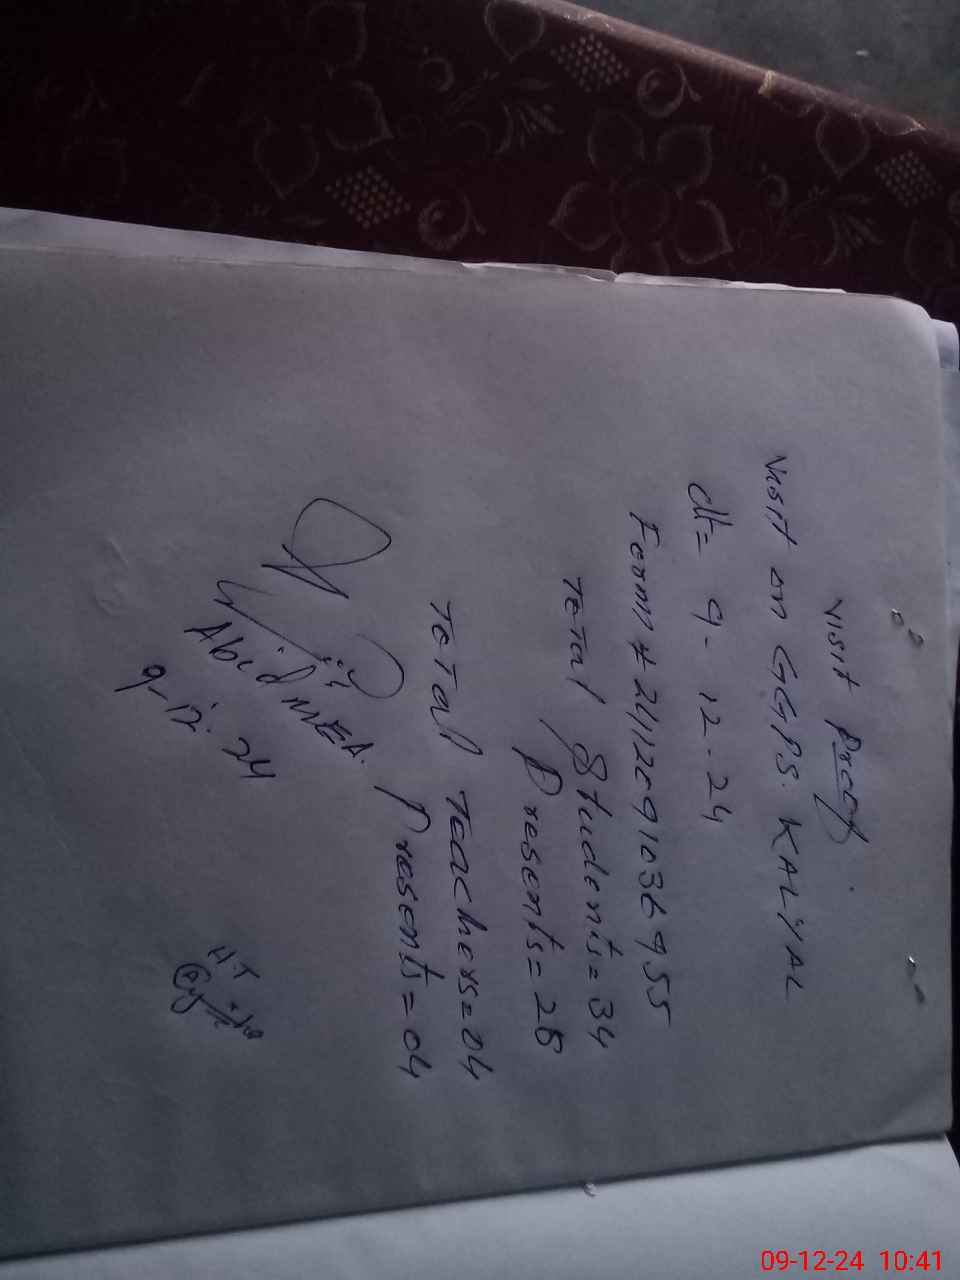 Visit Proof
Visit on GGPS. KALYAL
dt= 9. 12. 24
Form # 2412091036955
Total Students = 34
Presents = 28
Total Teachers = 04
Presents = 04
Abid MEA.
9-12-24
HT
09-12-24 10:41